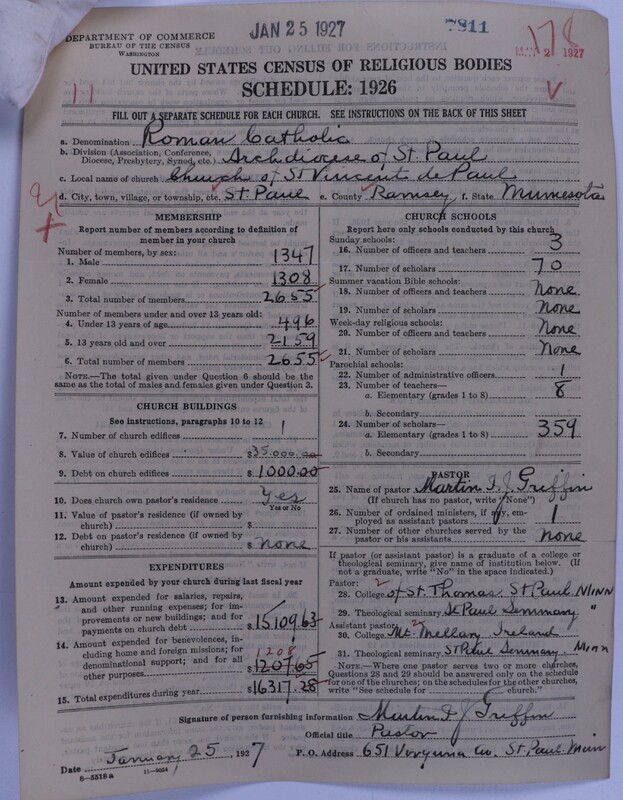 DEPARTMENT OF COMMERCE
BUREAU OF THE CENSUS
WASHINGTON
JAN 25 1927
7811
178
1927
UNITED STATES CENSUS OF RELIGIOUS BODIES
SCHEDULE: 1926
11
FILL OUT A SEPARATE SCHEDULE FOR EACH CHURCH. SEE INSTRUCTIONS ON THE BACK OF THIS SHEET
a. Denomination Roman Catholic
b. Division (Association, Conference, Diocese, Presbytery, Synod, etc.) Archdiocese of St. Paul
c. Local name of church Church of St Vincent de Paul
d. City, town, village, or township, etc. St. Paul e. County Ramsey f. State Minnesota
MEMBERSHIP
Report number of members according to definition of member in your church
Number of members, by sex:
1. Male 1347
2. Female 1308
3. Total number of members 2655
Number of members under and over 13 years old:
4. Under 13 years of age 496
5. 13 years old and over 2159
6. Total number of members 2655
NOTE.—The total given under Question 6 should be the same as the total of males and females given under Question 3.
CHURCH BUILDINGS
See instructions, paragraphs 10 to 12
7. Number of church edifices 1
8. Value of church edifices $35.000.00
9. Debt on church edifices $1000.00
10. Does church own pastor's residence? Yes
Yes or No
11. Value of pastor's residence (if owned by church) $
12. Debt on pastor's residence (if owned by church) $ None
EXPENDITURES
Amount expended by your church during last fiscal year
13. Amount expended for salaries, repairs, and other running expenses; for improvements or new buildings; and for payments on church debt $15109.63
14. Amount expended for benevolences, including home and foreign missions; for denominational support; and for all other purposes $1207.65
1208
15. Total expenditures during year $16317.28
CHURCH SCHOOLS
Report here only schools conducted by this church
Sunday schools:
16. Number of officers and teachers 3
17. Number of scholars 70
Summer vacation Bible schools:
18. Number of officers and teachers None
19. Number of scholars None
Week-day religious schools:
20. Number of officers and teachers None
21. Number of scholars None
Parochial schools:
22. Number of administrative officers 1
23. Number of teachers—
a. Elementary (grades 1 to 8) 8
b. Secondary
24. Number of scholars—
a. Elementary (grades 1 to 8) 359
b. Secondary
PASTOR
25. Name of pastor Martin I. J. Griffin
(If church has no pastor, write "None")
26. Number of ordained ministers, if any, employed as assistant pastors 1
27. Number of other churches served by the pastor or his assistants None
If pastor (or assistant pastor) is a graduate of a college or theological seminary, give name of institution below. (If not a graduate, write "No" in the space indicated.)
Pastor: 2
28. College of St. Thomas. St Paul. Minn
29. Theological seminary St Paul Seminary "
Assistant pastor: 2
30. College Mt. Mellary Ireland
31. Theological seminary St Paul Seminary. Minn
NOTE.—Where one pastor serves two or more churches, Questions 28 and 29 should be answered only on the schedule for one of the churches; on the schedules for the other churches, write "See schedule for church."
Signature of person furnishing information Martin I J Griffin
Official title Pastor
Date January 25, 1927 P. O. Address 651 Virginia Av. St. Paul. Minn
8-5518a 11-9034